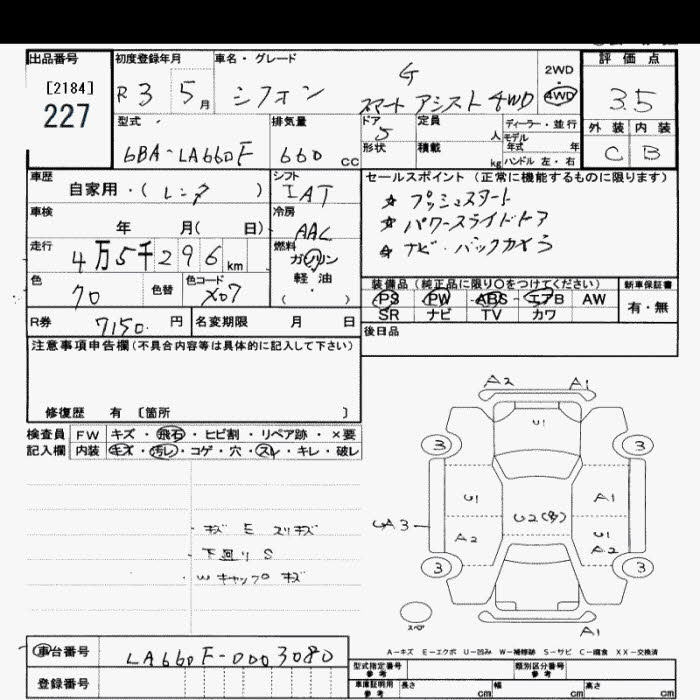 出品番号 初度登録年月 車名・グレード 評価点
[2184]
227
R 3 5月 シフォン G
スマートアシスト 4WD
2WD
・
4WD
3.5
型式 排気量 ドア 定員 ディーラー・並行
6BA-LA660F 660 cc 5 人 モデル年式 年
形状 積載 kg ハンドル 左・右
外装 内装
C B
車歴 自家用・( レンタ ) シフト IAT
セールスポイント(正常に機能するものに限ります)
☆ プッシュスタート
☆ パワースライドドア
☆ ナビ・バックカメラ
車検 年 月( 日) 冷房 AAC
走行 4万5千296km 燃料 ガソリン
軽・油
( ・ )
色 70 色替 色コード X07
装備品(純正品に限り○をつけてください) 新車保証書
PS PW ABS エアB AW 有・無
SR ナビ TV カワ
R券 7150 円 名変期限 月 日 後日品
注意事項申告欄(不具合内容等は具体的に記入して下さい)
修復歴 有〔箇所 〕
検査員 FW キズ・飛石・ヒビ割・リペア跡・×要
記入欄 内装 キズ・汚レ・コゲ・穴・スレ・キレ・破レ
・キズ E スリキズ
・下回り S
・Wキャップ キズ
A2 A1
U1
3 3
U1 A1
U2(多)
UA3 A2 U1
A2
3 3
スペア
A1
A-キズ E-エクボ U-凹み W-補修跡 S-サビ C-腐食 XX-交換済
車台番号 LA660F-0003080
登録番号
型式指定番号 参考 類別区分番号 参考
車庫証明用 参考 長さ cm 幅 cm 高さ cm